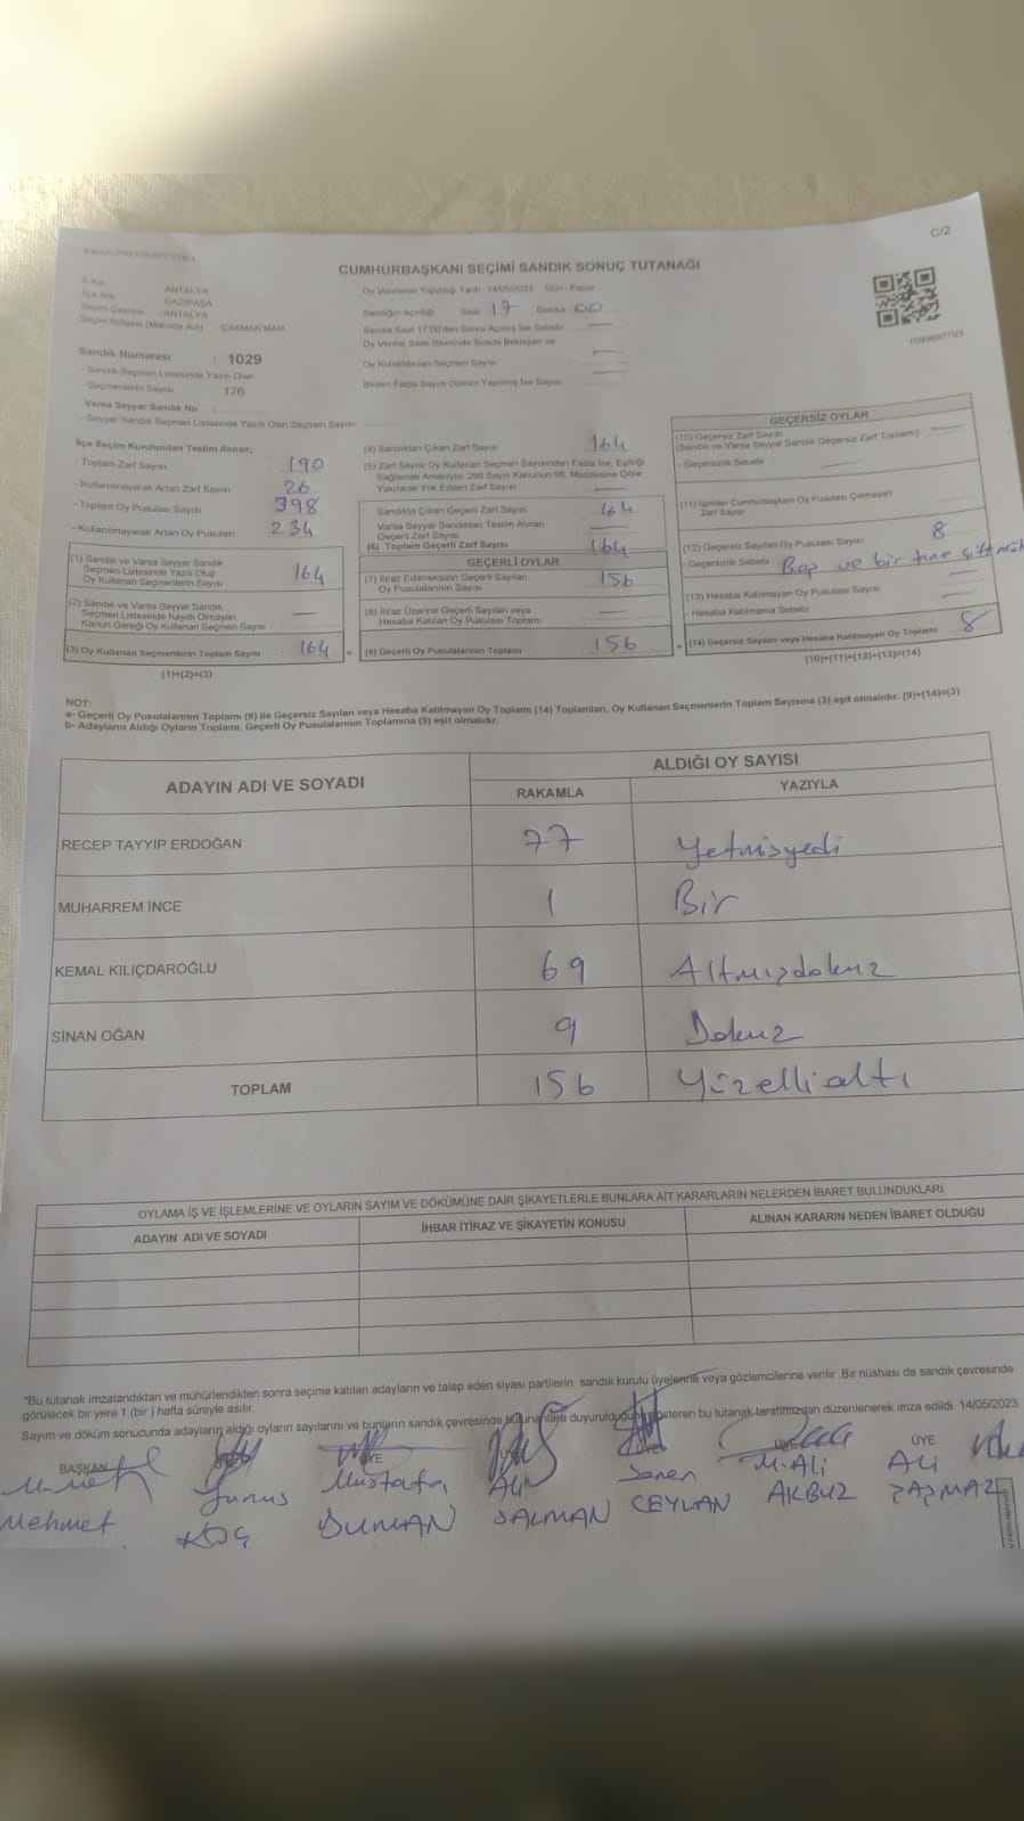 C/2
CUMHURBAŞKANI SEÇİMİ SANDIK SONUÇ TUTANAĞI
ANTALYA
GAZİPAŞA
ANTALYA
17
00
Sandık Numarası : 1029
Seçmenlerin Sayısı
Varsa Seyyar Sandık No
İlçe Seçim Kurulundan Teslim Alınan;
- Toplam Zarf Sayısı 190
- Kullanılmayarak Artan Zarf Sayısı 26
- Toplam Oy Pusulası Sayısı 398
- Kullanılmayarak Artan Oy Pusulası 234
(1) Sandık ve Varsa Seyyar Sandık
Seçmen Listesinde Yazılı Olup
Oy Kullanan Seçmenlerin Sayısı 164
(2) Sandık ve Varsa Seyyar Sandık
Seçmen Listesinde Kaydı Olmayan
Kanun Gereği Oy Kullanan Seçmen Sayısı —
(3) Oy Kullanan Seçmenlerin Toplam Sayısı 164 =
(1)+(2)=(3)
(4) Sandıktan Çıkan Zarf Sayısı 164
Sandıkta Çıkan Geçerli Zarf Sayısı 164
Varsa Seyyar Sandıktan Teslim Alınan
Geçerli Zarf Sayısı —
(6) Toplam Geçerli Zarf Sayısı 164
GEÇERLİ OYLAR
(7) İtiraz Edilmeksizin Geçerli Sayılan
Oy Pusulalarının Sayısı 156
(8) İtiraz Üzerine Geçerli Sayılan veya
Hesaba Katılan Oy Pusulası Toplamı —
(9) Geçerli Oy Pusulalarının Toplamı 156 +
GEÇERSİZ OYLAR
(10) Geçersiz Zarf Sayısı
(Sandık ve Varsa Seyyar Sandık Geçersiz Zarf Toplamı) —
- Geçersizlik Sebebi —
(11) İçinden Cumhurbaşkanı Oy Pusulası Çıkmayan
Zarf Sayısı —
(12) Geçersiz Sayılan Oy Pusulası Sayısı 8
- Geçersizlik Sebebi Boş ve bir tane
(13) Hesaba Katılmayan Oy Pusulası Sayısı —
- Hesaba Katılmama Sebebi —
(14) Geçersiz Sayılan veya Hesaba Katılmayan Oy Toplamı 8
(10)+(11)+(12)+(13)=(14)
NOT:
a- Geçerli Oy Pusulalarının Toplamı (9) ile Geçersiz Sayılan veya Hesaba Katılmayan Oy Toplamı (14) Toplamları, Oy Kullanan Seçmenlerin Toplam Sayısına (3) eşit olmalıdır. (9)+(14)=(3)
b- Adayların Aldığı Oyların Toplamı, Geçerli Oy Pusulalarının Toplamına (9) eşit olmalıdır.
ADAYIN ADI VE SOYADI
ALDIĞI OY SAYISI
RAKAMLA YAZIYLA
RECEP TAYYİP ERDOĞAN 77 Yetmişyedi
MUHARREM İNCE 1 Bir
KEMAL KILIÇDAROĞLU 69 Altmışdokuz
SİNAN OĞAN 9 Dokuz
TOPLAM 156 Yüzelli altı
OYLAMA İŞ VE İŞLEMLERİNE VE OYLARIN SAYIM VE DÖKÜMÜNE DAİR ŞİKAYETLERLE BUNLARA AİT KARARLARIN NELERDEN İBARET BULUNDUKLARI
ADAYIN ADI VE SOYADI İHBAR İTİRAZ VE ŞİKAYETİN KONUSU ALINAN KARARIN NEDEN İBARET OLDUĞU
"Bu tutanak imzalandıktan ve mühürlendikten sonra seçime katılan adayların ve talep eden siyasi partilerin, sandık kurulu üyelerine veya gözlemcilerine verilir. Bir nüshası da sandık çevresinde
görülecek bir yere 1 (bir) hafta süreyle asılır.
Sayım ve döküm sonucunda adayların aldığı oyların sayılarını ve bunların sandık çevresinde duyurulduğunu gösteren bu tutanak tarafımızdan düzenlenerek imza edildi. 14/05/2023
BAŞKAN ÜYE ÜYE
Mustafa Ali Soner M.Ali ALİ
Mehmet Yunus
KOÇ DUMAN SALMAN CEYLAN AKBUZ